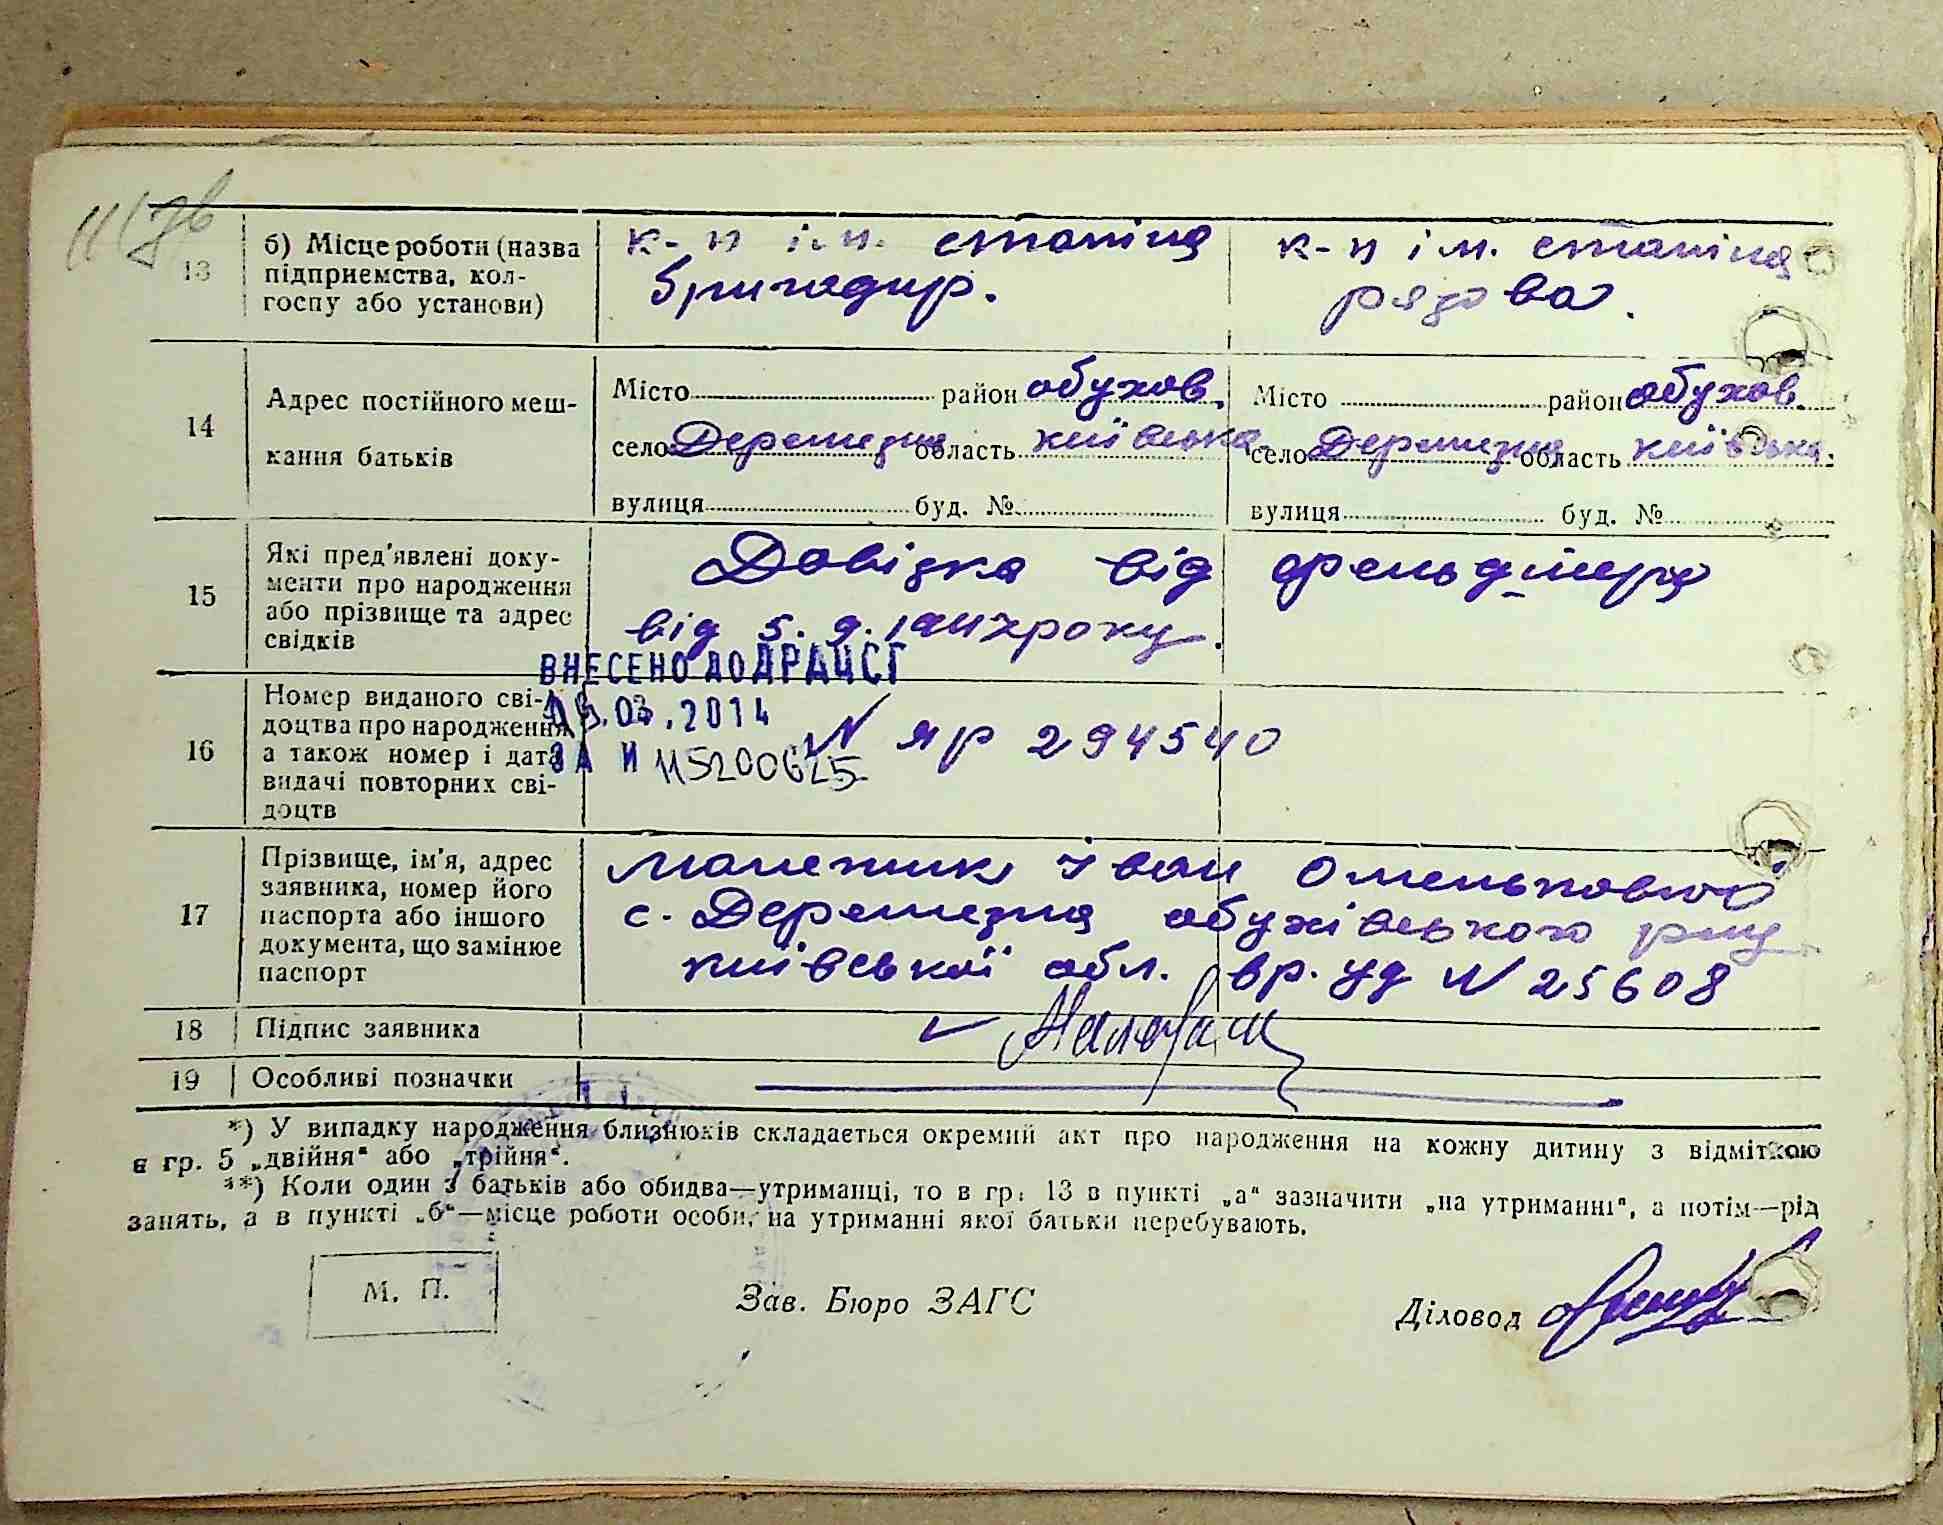 13
б) Місце роботи (назва
підприємства, кол-
госпу або установи)
к-п ім. сталіна
бригадир.
к-п ім. сталіна
рядова.
14
Адрес постійного меш-
кання батьків
Місто район обухов.
село Деремезна область київська
вулиця буд. №
Місто район обухов.
село Деремезна область київська.
вулиця буд. №
15
Які пред'явлені доку-
менти про народження
або прізвище та адрес
свідків
Довідка від фельдшера
від 5. року.
ВНЕСЕНО ДО ДРАЦСГ
.03.2014
ЗА №
16
Номер виданого сві-
доцтва про народження
а також номер і дата
видачі повторних сві-
доцтв
N яр 294540
17
Прізвище, ім'я, адрес
заявника, номер його
паспорта або іншого
документа, що замінює
паспорт
Іван Омелькович
с. Деремезна обухівського р-ну
київської обл. вр. уд N 25608
18 Підпис заявника
19 Особливі позначки
*) У випадку народження близнюків складається окремий акт про народження на кожну дитину з відміткою
в гр. 5 „двійня“ або „трійня“.
**) Коли один з батьків або обидва—утриманці, то в гр. 13 в пункті „а“ зазначити „на утриманні“, а потім—рід
занять, а в пункті „б“—місце роботи особи, на утриманні якої батьки перебувають.
М. П.
Зав. Бюро ЗАГС
Діловод